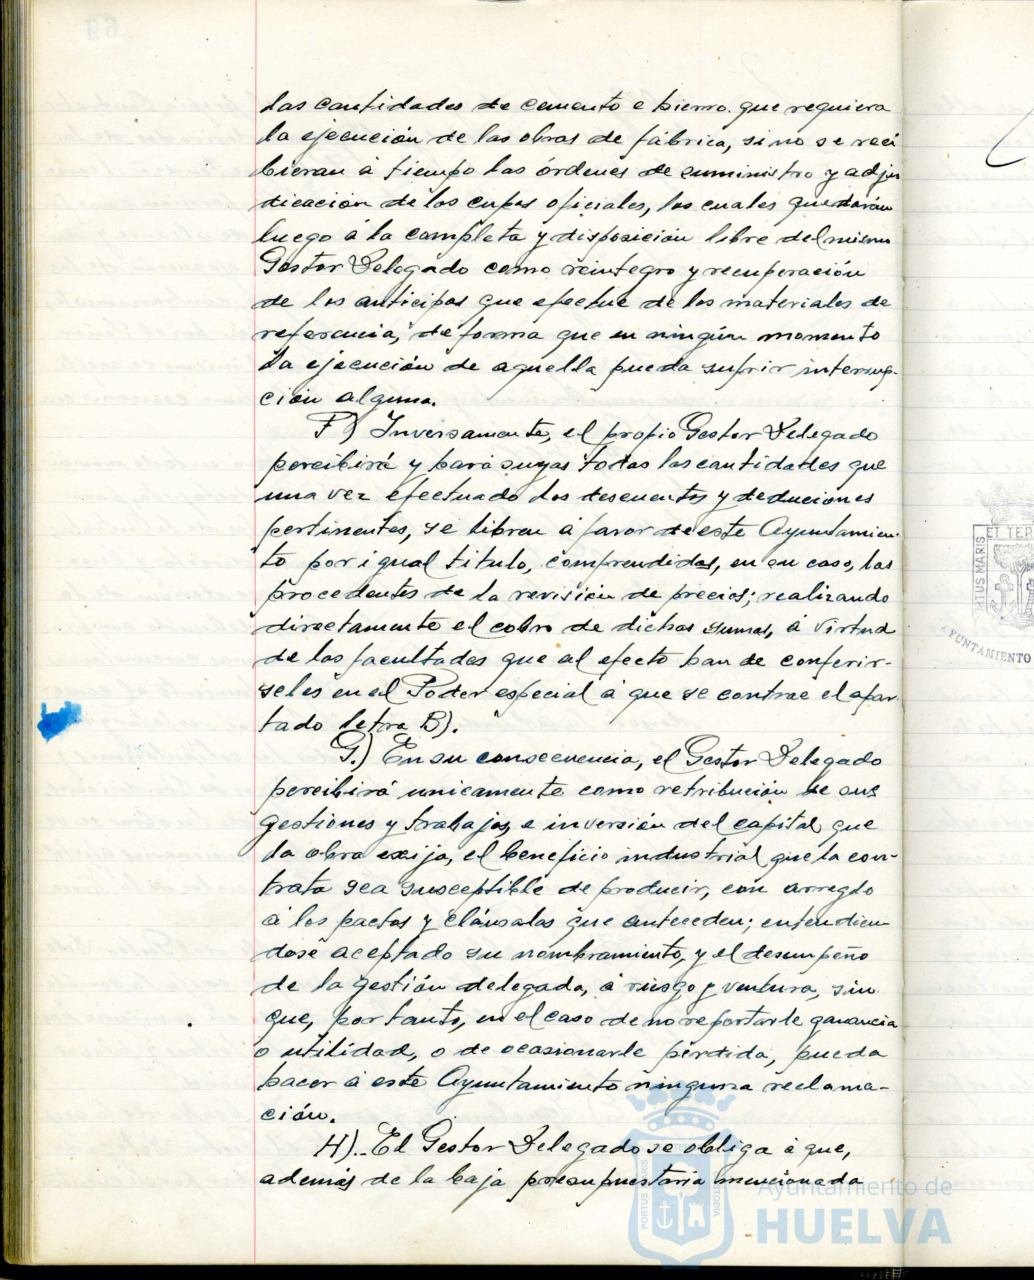 las cantidades de cemento e hierro que requiera
la ejecución de las obras de fábrica, si no se reci
bieran á tiempo las órdenes de suministro y adju
dicación de los cupos oficiales, los cuales quedarán
luego á la completa y disposición libre del mismo
Gestor Delegado como reintegro y recuperación
de los anticipos que efectue de los materiales de
referencia, de forma que en ningún momento
la ejecución de aquella pueda sufrir interrup-
ción alguna.
F) Inversamente, el propio Gestor Delegado
percibirá y hará suyas todas las cantidades que
una vez efectuado los descuentos y deduciones
pertinentes, se libren á favor de este Ayuntamien-
to por igual titulo, comprendidas, en su caso, las
procedentes de la revisión de precios; realizando
directamente el cobro de dichas sumas, á virtud
de las facultades que al efecto han de conferir-
seles en el Poder especial á que se contrae el apar-
tado letra B).
G.) En su consecuencia, el Gestor Delegado
percibirá unicamente como retribución de sus
gestiones y trabajos, e inversión del capital que
la obra exija, el beneficio industrial que la con-
trata sea susceptible de producir, con arreglo
á los pactos y cláusulas que anteceden; entendien-
dose aceptado su nombramiento, y el desempeño
de la gestión delegada, á riesgo y ventura, sin
que, por tanto, en el caso de no reportarle ganancia
o utilidad, o de ocasionarle pérdida, pueda
hacer á este Ayuntamiento ninguna reclama-
ción.
H).- El Gestor Delegado se obliga á que,
además de la baja presupuestaria mencionada
PORTUS MARIS
ET TER
AYUNTAMIENTO
PORTUS MARIS
Ayuntamiento de
HUELVA